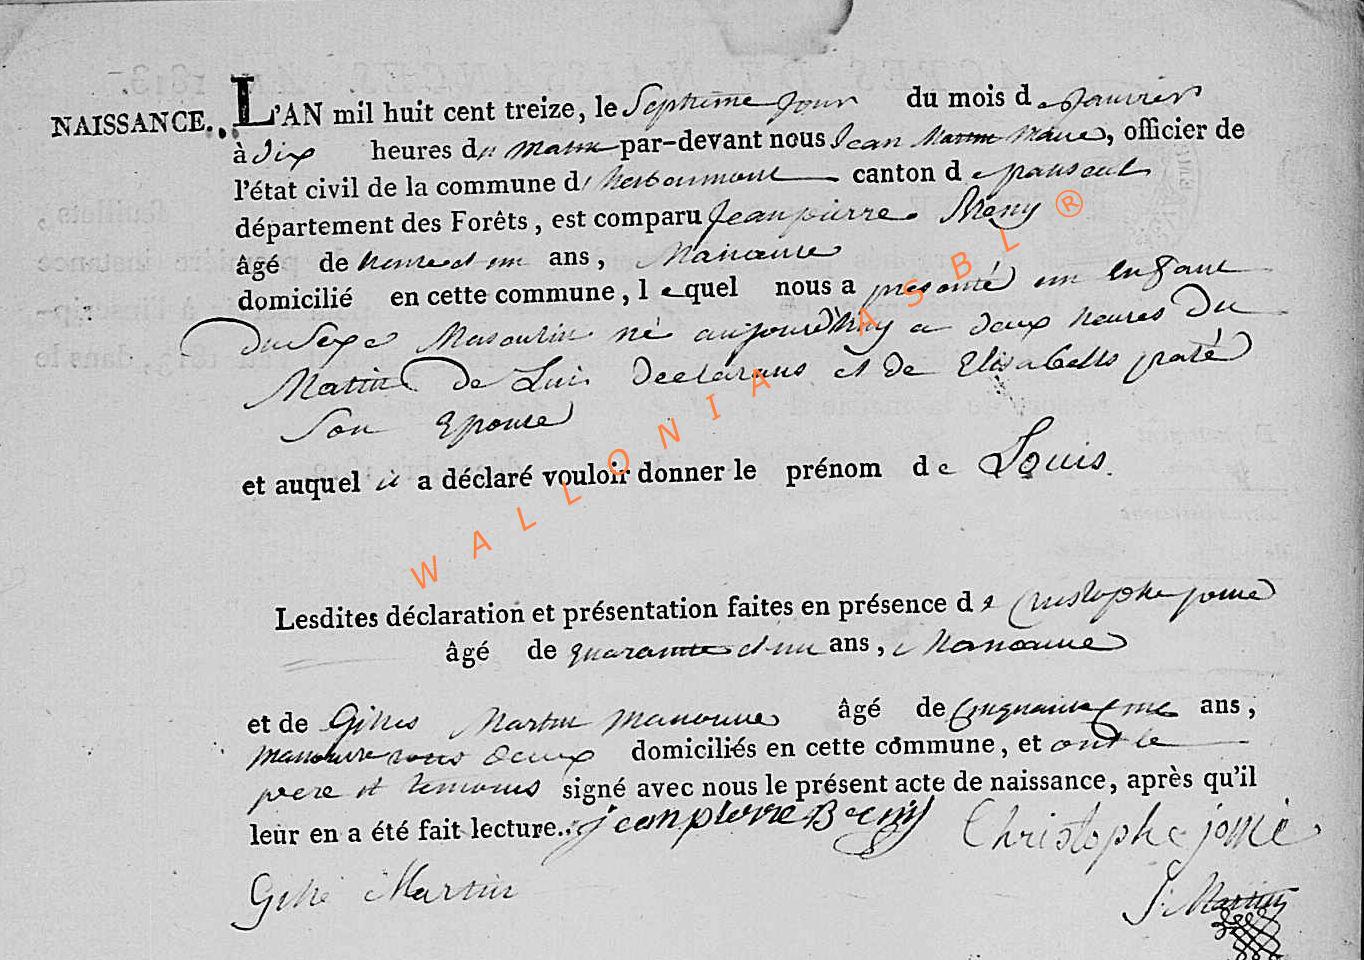 NAISSANCE.
L'AN mil huit cent treize, le Septieme jour du mois de Janvier
à dix heures du matin par-devant nous Jean Martin Maire, officier de
l'état civil de la commune d'herbeumont canton de paliseul
département des Forêts, est comparu Jean pierre Bremy
âgé de trente et un ans, Manoeuvre
domicilié en cette commune, lequel nous a presenté un enfant
du Sexe Masculin né aujourd'huy a deux heures du
Matin de Lui declarant et de Elisabeth
Son Epouse
et auquel il a déclaré vouloir donner le prénom de Louis.
Lesdites déclaration et présentation faites en présence de Christophe jomé
âgé de quarante et un ans, Manoeuvre
et de Gilles Martin manoeuvre âgé de cinquante ans,
manoeuvre tous deux domiciliés en cette commune, et ont le
pere et temoins signé avec nous le présent acte de naissance, après qu'il
leur en a été fait lecture. jean pierre Bremy Christophe jomé
Gille Martin J. Martin
WALLONIA ASBL ®